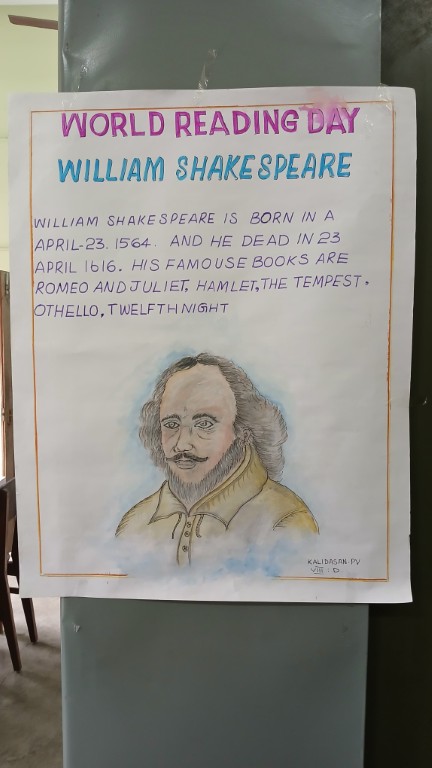 WORLD READING DAY
WILLIAM SHAKESPEARE
WILLIAM SHAKESPEARE IS BORN IN A
APRIL-23. 1564. AND HE DEAD IN 23
APRIL 1616. HIS FAMOUSE BOOKS ARE
ROMEO AND JULIET, HAMLET, THE TEMPEST,
OTHELLO, TWELFTH NIGHT
KALIDASAN PV
VIII : D